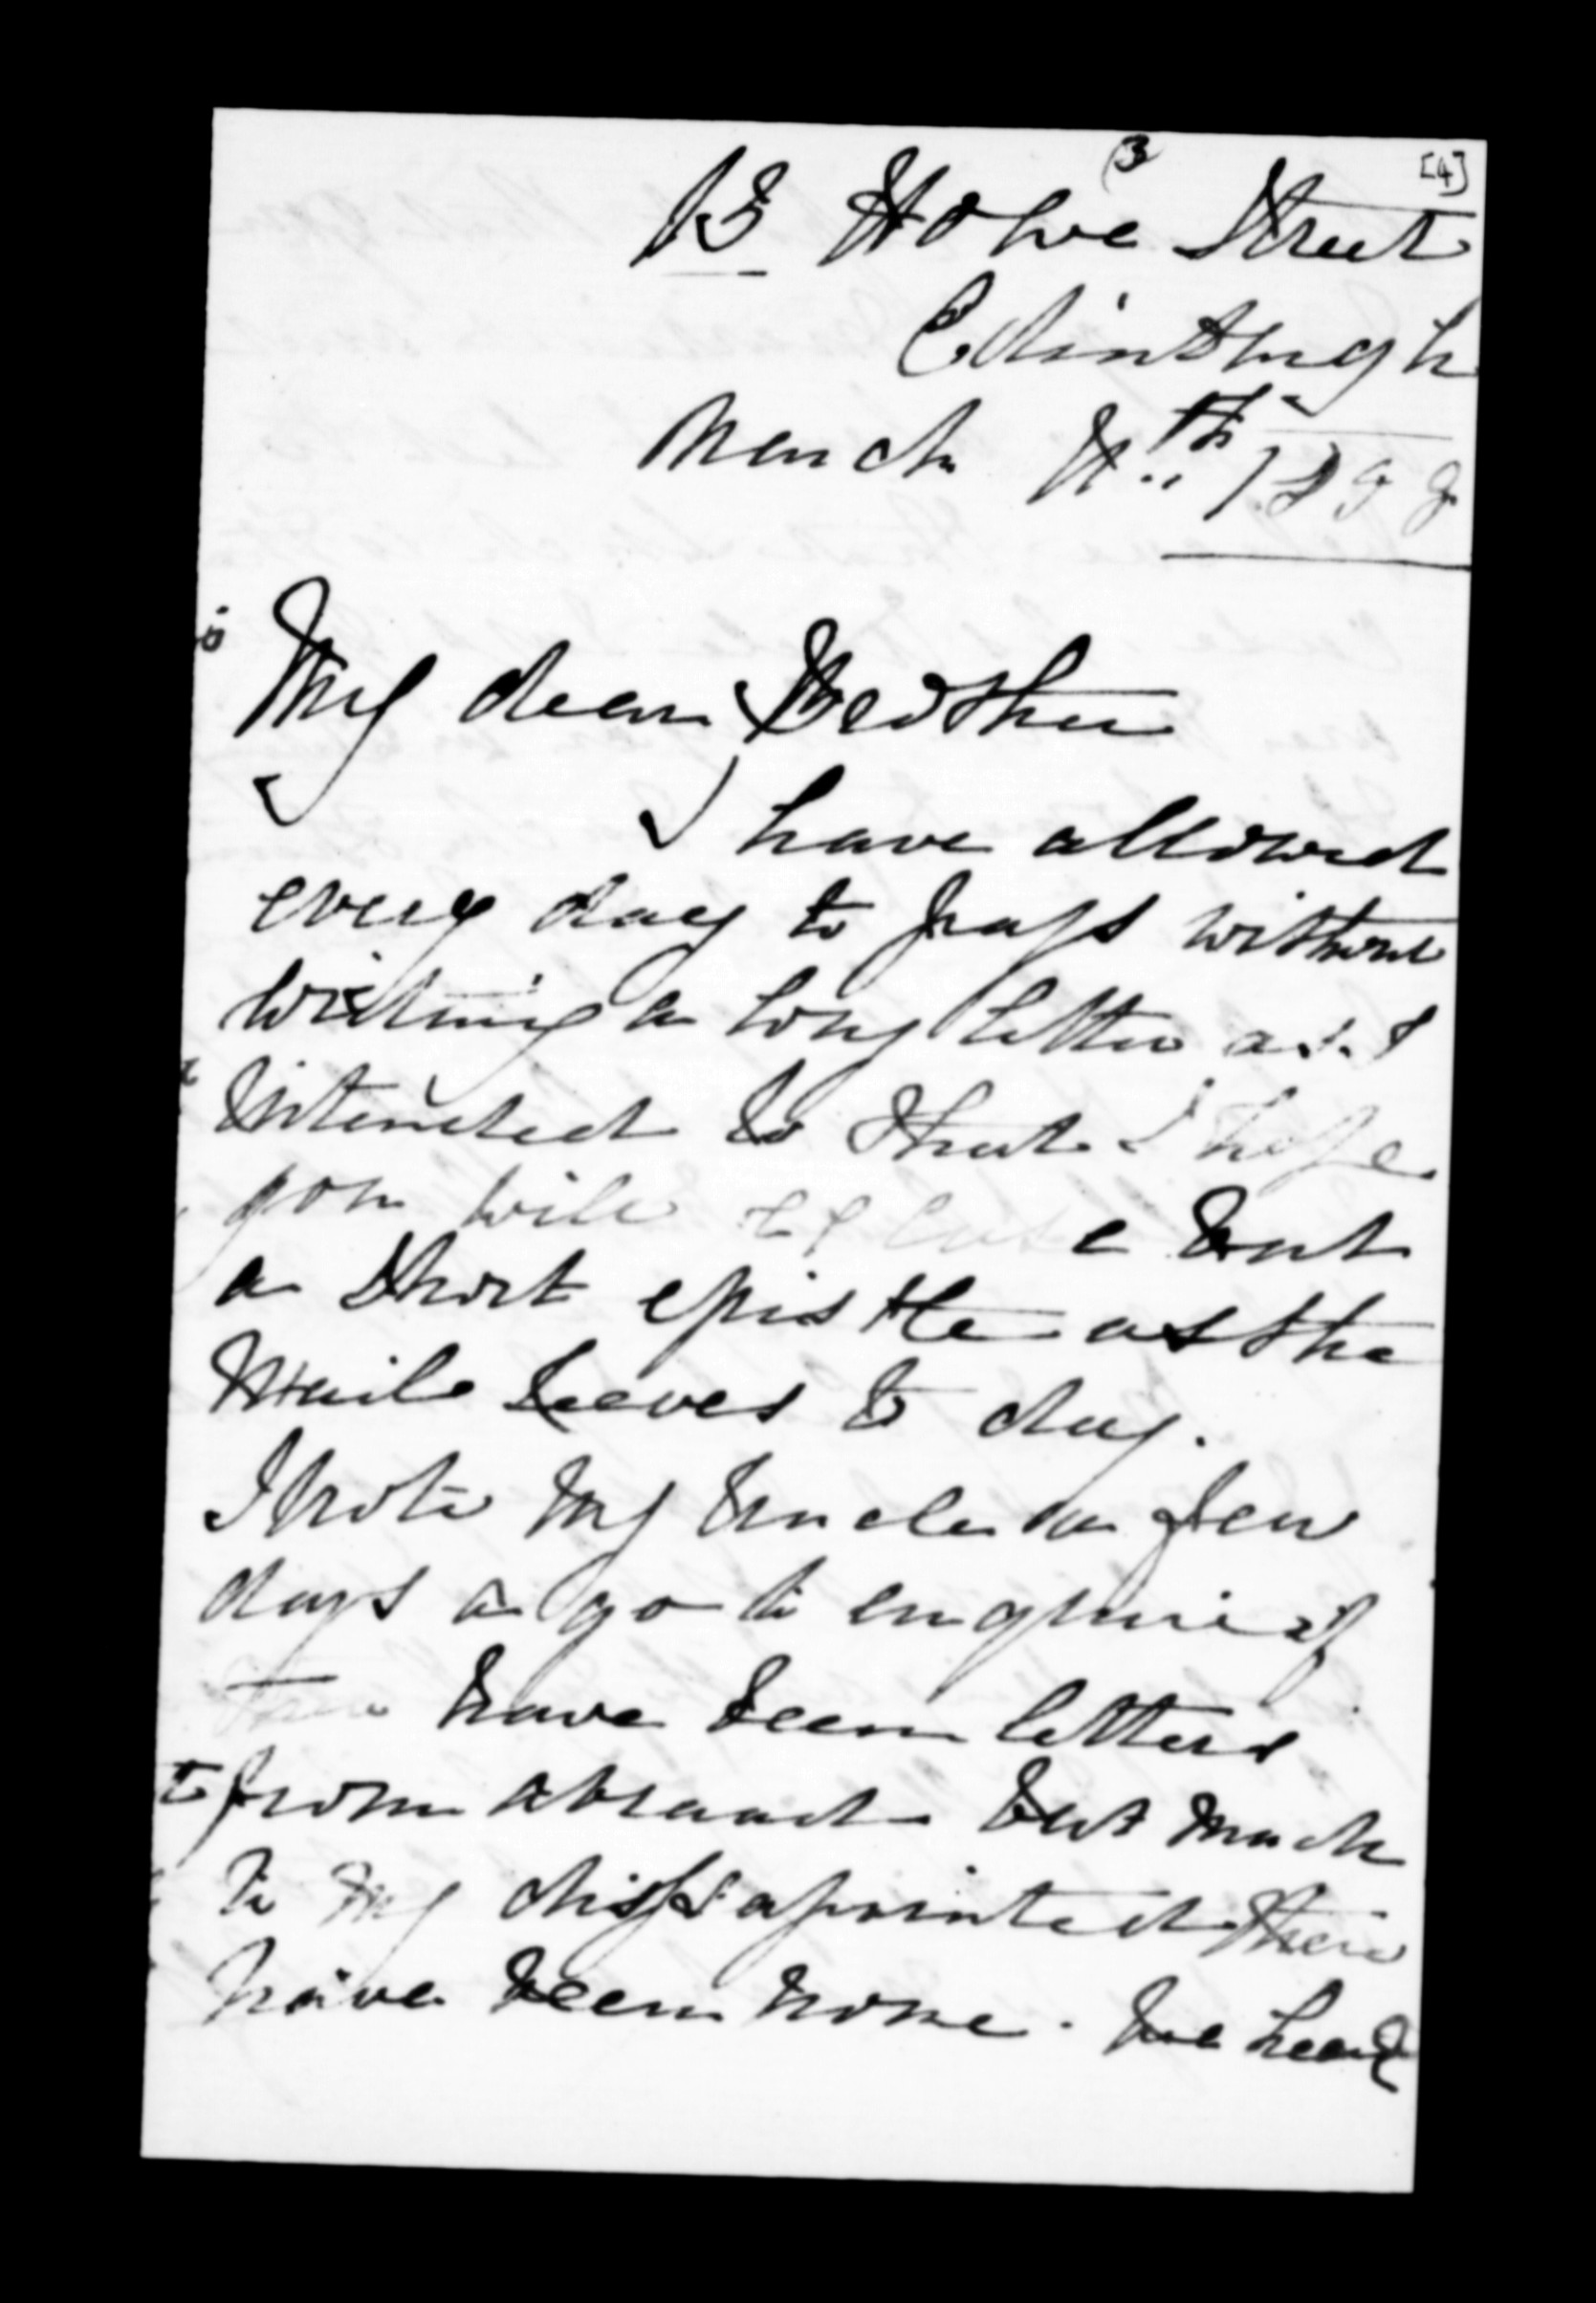 (3
[4]
13 Howe Street
Edinburgh
March 4th
My dear Brother
I have allowed
every day to pass without
writing a long letter as I
intended so that I hope
you will excuse but
a short epistle as the
Mail leeves to day.
I wrote my Uncle a few
days a go to enquire if
have been letters
from abroad but much
to my dissapointed their
have been none. We hear